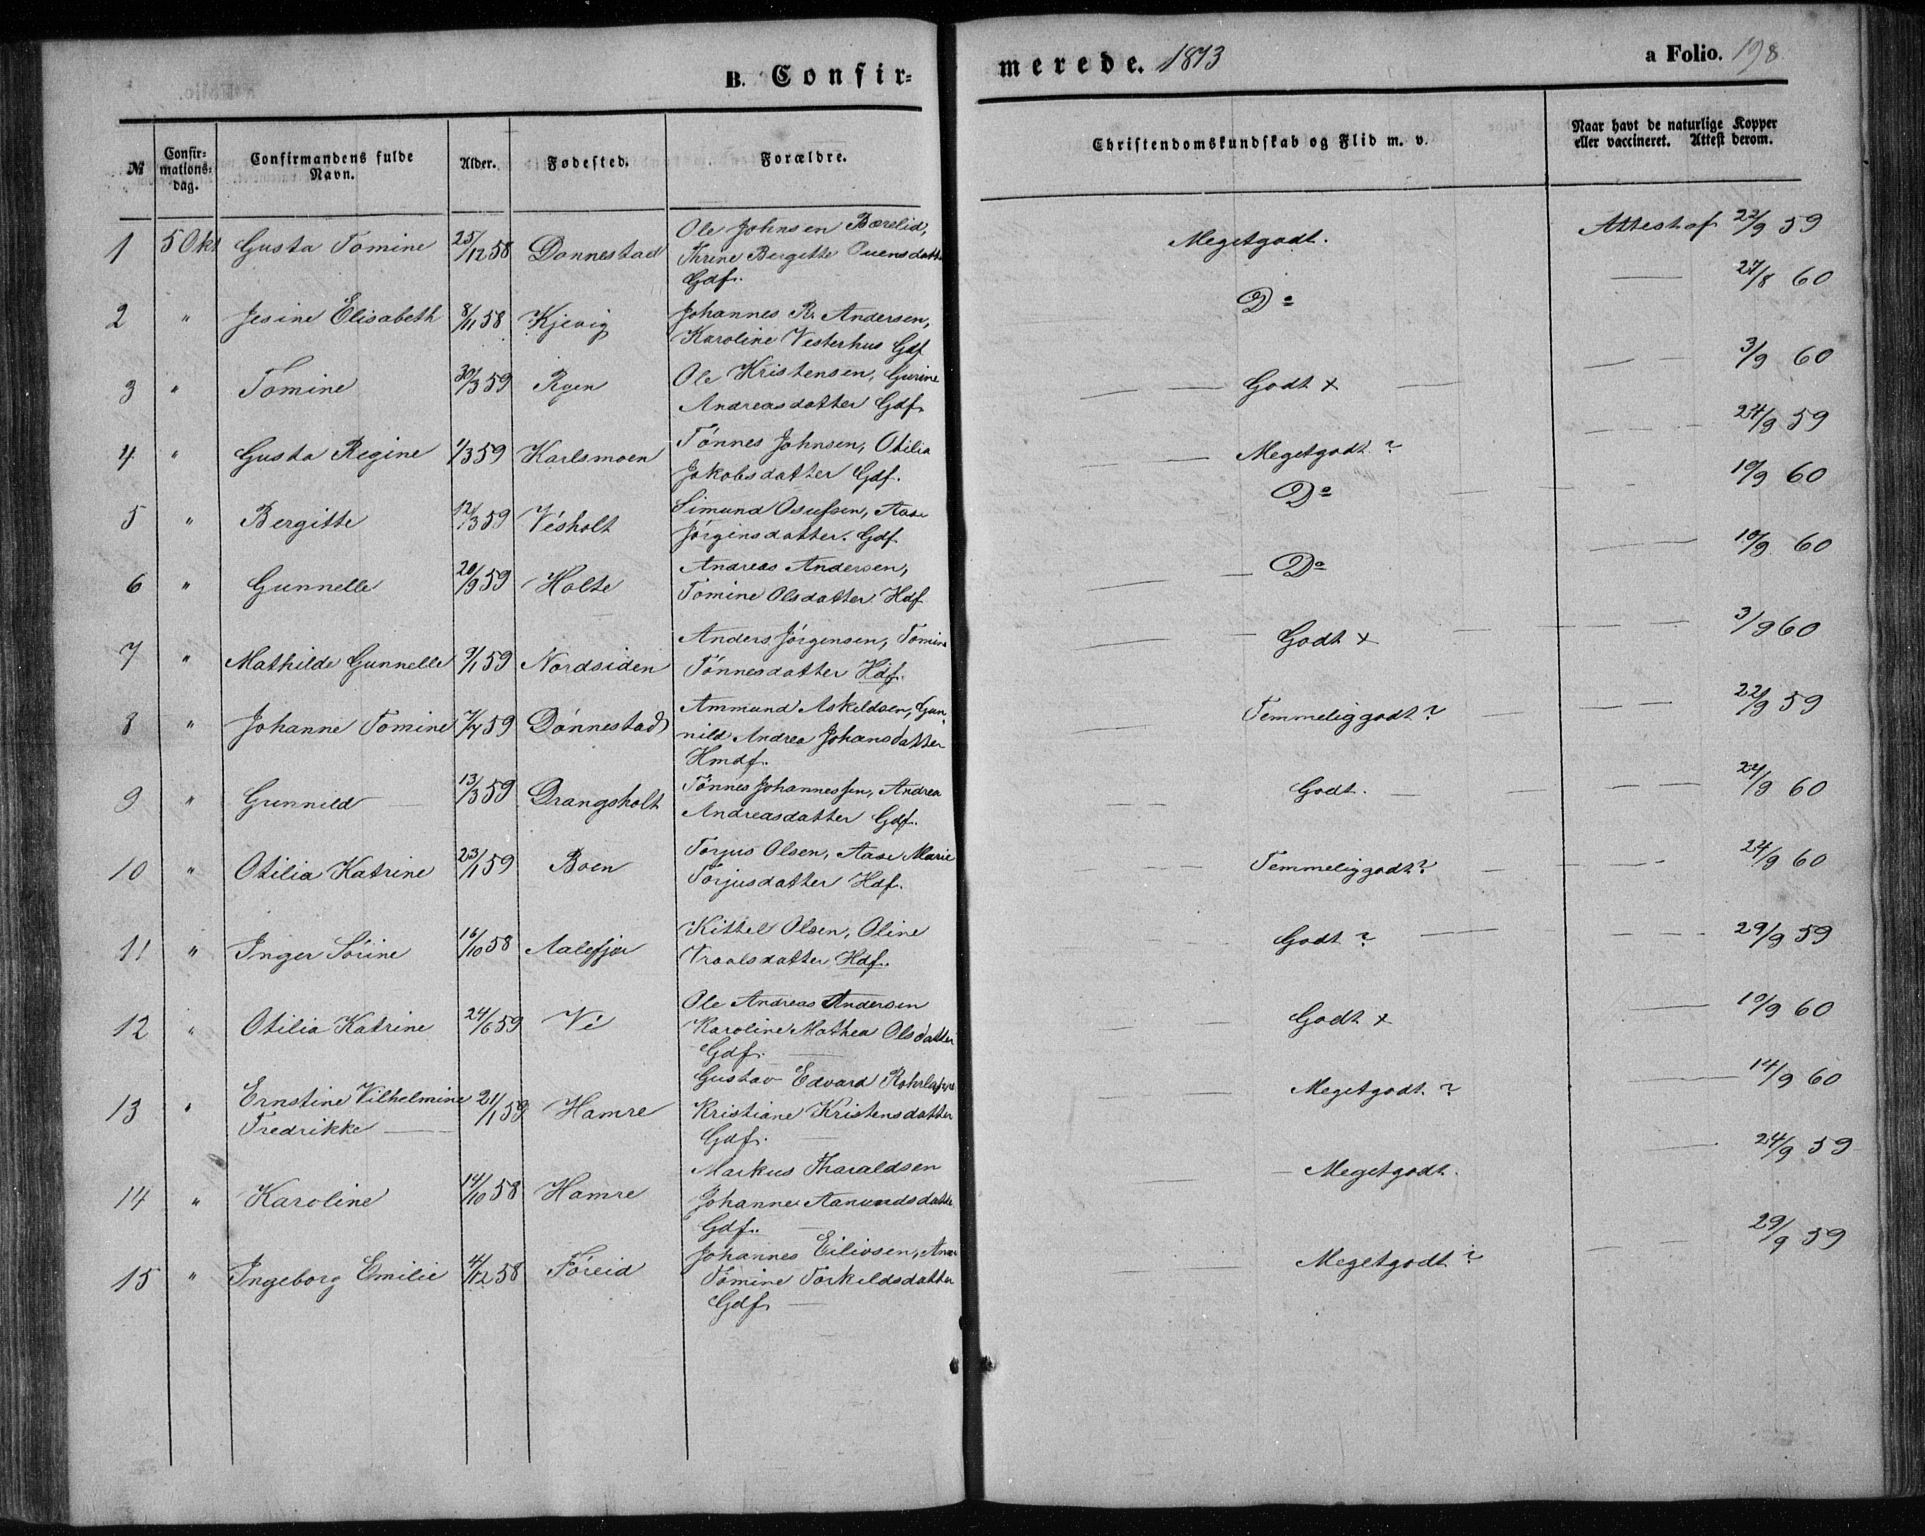 B. Confir-
merede. 1873
a Folio. 198
№
Confir-
mations-
dag.
Confirmandens fulde
Navn.
Alder.
Fødested.
Forældre.
Christendomskundskab og Flid m. v.
Naar havt de naturlige Kopper
eller vaccineret. Attest derom.
1 5 Okt Gusta Tomine 25/12 58 Dannestad Ole Johnsen Bærelid,
Thrine Bergitte Ouensdatter
Gdf. Megetgodt. Attest af 22/9 59
2 " Jesine Elisabeth 8/11 58 Kjevig Johannes R. Andersen,
Karoline Vesterhus Gdf Do 27/8 60
3 " Tomine 30/3 59 Ryen Ole Kristensen, Gurine
Andreasdatter Gdf. Godt x 3/9 60
4 " Gusta Regine 1/3 59 Karlsmoen Tønnes Johnsen, Otilia
Jakobsdatter Gdf. Megetgodt ? 24/9 59
5 " Bergitte 12/3 59 Vésholt Simund Osufsen, Aase
Jørginsdatter. Gdf. Do 10/9 60
6 " Gunnelle 20/9 59 Holte Andreas Andersen,
Tomine Olsdatter Hdf Do 10/9 60
7 " Mathilde Gunnelle 9/1 59 Nordsiden Anders Jørgensen, Tomine
Tønnesdatter Hdf. Godt x 3/9 60
8 " Johanne Tomine 7/4 59 Dønnestad Ammund Askildsen, Gun-
nild Andrea Johansdatter
Hmdf. Temmeliggodt ? 22/9 59
9 " Gunnild 13/3 59 Drangsholt Tønnes Johannessen, Andrea
Andreasdatter Gdf. Godt. 24/9 60
10 " Otilia Katrine 23/1 59 Boen Torjus Olsen, Aase Marie
Torjusdatter Hdf. Temmeliggodt ? 24/9 60
11 " Inger Sørine 16/10 58 Aalefjær Kittel Olsen, Oline
Vraalsdatter Hdf. Godt ? 29/9 59
12 " Otilia Katrine 24/6 59 Vé Ole Andreas Andersen
Karoline Mathea Olsdatter
Gdf. Godt x 10/9 60
13 " Ernstine Vilhelmine
Fredrikke 21/1 59 Hamre Gustav Edvard
Kristiane Kristensdatter
Gdf. Megetgodt. ? 14/9 60
14 " Karoline 14/10 58 Hamre Markus Tharaldsen
Johanne Aanundsdatter
Gdf. Megetgodt. 24/9 59
15 " Ingeborg Emilie 4/12 58 Føreid Johannes Eilivsen,
Tomine Torkildsdatter
Gdf. Megetgodt ? 29/9 59